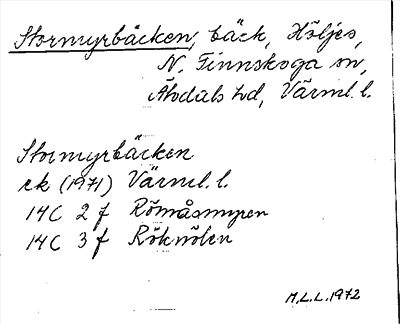 Stormyrbäcken, bäck, Höljes,
N. Finnskoga sn,
Älvdals hd, Värml. l.
Stormyrbäcken
ek (1971) Värml. l.
14C 2 f Römåsmyren
14C 3 f Röknölen
M.L.L. 1972